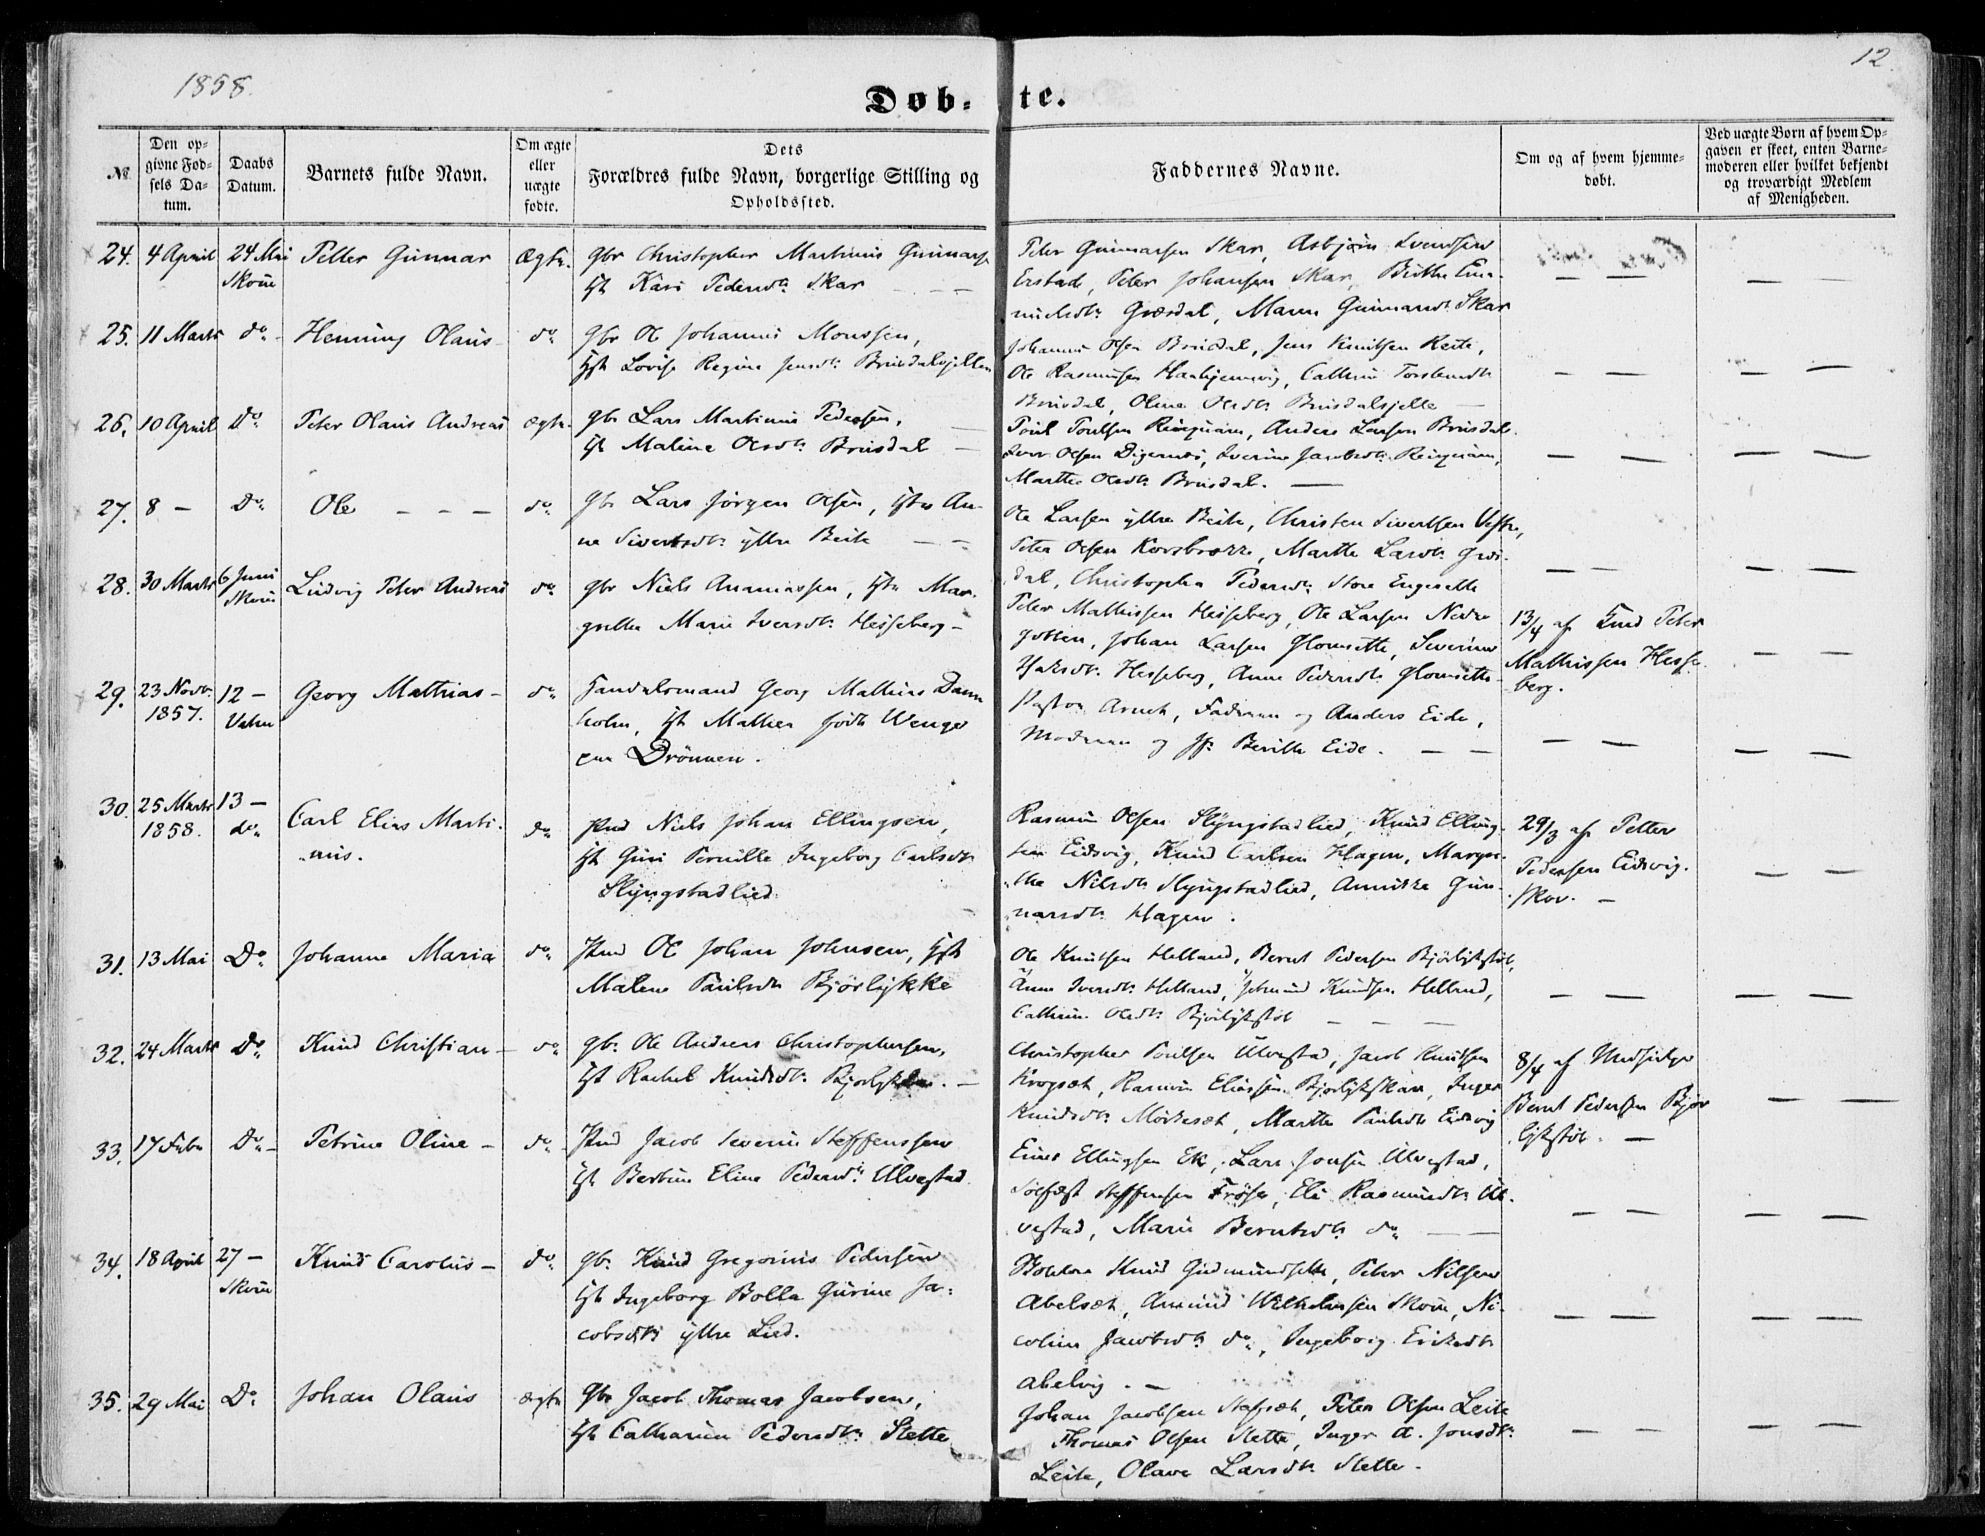 1858.
12.
Døb-te.
No.
Den op-
givne Fød-
sels Da-
tum.
Daabs
Datum.
Barnets fulde Navn.
Om ægte
eller
uægte
fødte.
Dets
Forældres fulde Navn, borgerlige Stilling og
Opholdssted.
Faddernes Navne.
Om og af hvem hjemme-
døbt.
Ved uægte Børn af hvem Op-
gaven er skeet, enten Barne-
moderen eller hvilket bekjendt
og troværdigt Medlem
af Menigheden.
24. 4 April 24 Mai Petter Gunnar Ægte. gbr Christopher Martinus Gunnars.
Skoue Kari Pedersdtr Skar
Peter Gunnarsen Skar, Asbjørn Svendsen
Erstad, Peter Johansen Skar, Birthe
Græsdal, Maren Gunnarsdt Skar
25. 11 Marts do Henning Olaus do gbr Ole Johannes Monssen,
Lovise Regine Jensdtr Brusdalsjellen
Johannes Olsen Brusdal, Jens Knutsen Reite,
Ole Rasmussen, Cathrine
Brusdal, Oline Olsdtr Brusdalsjelle
26. 10 April Do Peter Olaus Andreas ægte. gbr Lars Martinus Pedersen,
Maline Olsdtr Brusdal
Poul Poulsen, Anders Larsen Brusdal.
Iver Olsen Digernes, Iverine Jacobsdtr
Marthe Olsdtr Brusdal.
27. 8 – Do Ole do gbr Lars Jørgen Olsen, An-
ne Sivertsdtr yttre
Ole Larsen yttre, Christen Sivertsen
Peter Olsen Korsbrekke, Marthe Larsdtr Græs-
dal, Christopher Pedersdtr Store Engesette
28. 30 Marts 6 Juni Ludvig Peter Andreas do gbr Niels Ananiassen, Mar-
Skoue grethe Marie Iversdtr Hesseberg –
Peter Mathissen Hesseberg, Ole Larsen Nedre
Johan Larsen Glomsette, Severine
Hesseberg, Anne Pedersdtr Glomsette
13/4 af Peter
Mathissen Hesse-
berg.
29. 23 Novbr 12 – Georg Mathias – do Handelsmand Georg Mathias Dann
1857. Vatne holm, Mathea født Wenger
paa Drønnen.
Pastor, Faderen og Anders Eide,
Moderen og Berille Eide.
30. 25 Marts 13 – Carl Elias Marti- do Niels Johan Ellingsen,
1858. do nus. Guri Pernille Ingeborg Carlsdtr
Slyngstadlied
Rasmus Olsen Slyngstadlied, Knud Elling-
sen Eidsvig, Knud Carlsen Hagen, Margre-
the Nilsdtr Slyngstadlied, Annikke Gun-
narsdtr Hagen.
29/3 af Petter
Pedersen Eidsvig.
Skov. –
31. 13 Mai Do Johanne Maria do Ole Johan Johnsen,
Malene Paulsdtr Bjørlykke
Ole Knutsen Helland, Bernt Pedersen Bjørlykstøl,
Anne Iversdtr Helland, Knudsen Helland,
Cathrine Olsdtr Bjørlykstøl
32. 24 Marts Do Knud Christian – do gbr Ole Andreas Christophersen,
Rachel Knudsdtr
Christopher Poulsen Ulvestad, Jacob Knutsen
Krogsæt, Rasmus Eliassen, Inger
Knudsdtr Mørkesæt, Marthe Paulsdtr Eidsvig
8/4 af
Bernt Pedersen Bjør
lykstøl. –
33. 17 Febr Do – Petrine Oline – do Jacob Severin Steffensen
Bertine Eline Pedersdtr Ulvestad
Einar Ellingsen Ek, Lars Jonsen Ulvestad,
Steffensen, Eli Rasmusdtr Ul-
vestad, Marie Berntsdtr do
34. 18 April 27 – Knud Carolus – do gbr Knud Gregorius Pedersen
Skoue Ingeborg Bolla Gurine Ja-
cobsdtr yttre Lied.
Knud, Peter Nilsen
Abelsæt, Wilhelmsen Skoue, Ni-
coline Jacobsdtr do, Ingeborg
Abelvig. –
35. 29 Mai Do Johan Olaus ægte gbr Jacob Thomas Jacobsen,
Catharina Pedersdtr Slette
Johan Jacobsen, Peter Olsen Leite
Thomas Olsen Slette, Inger A. Jonsdtr
Leite, Olava Larsdtr Slette.